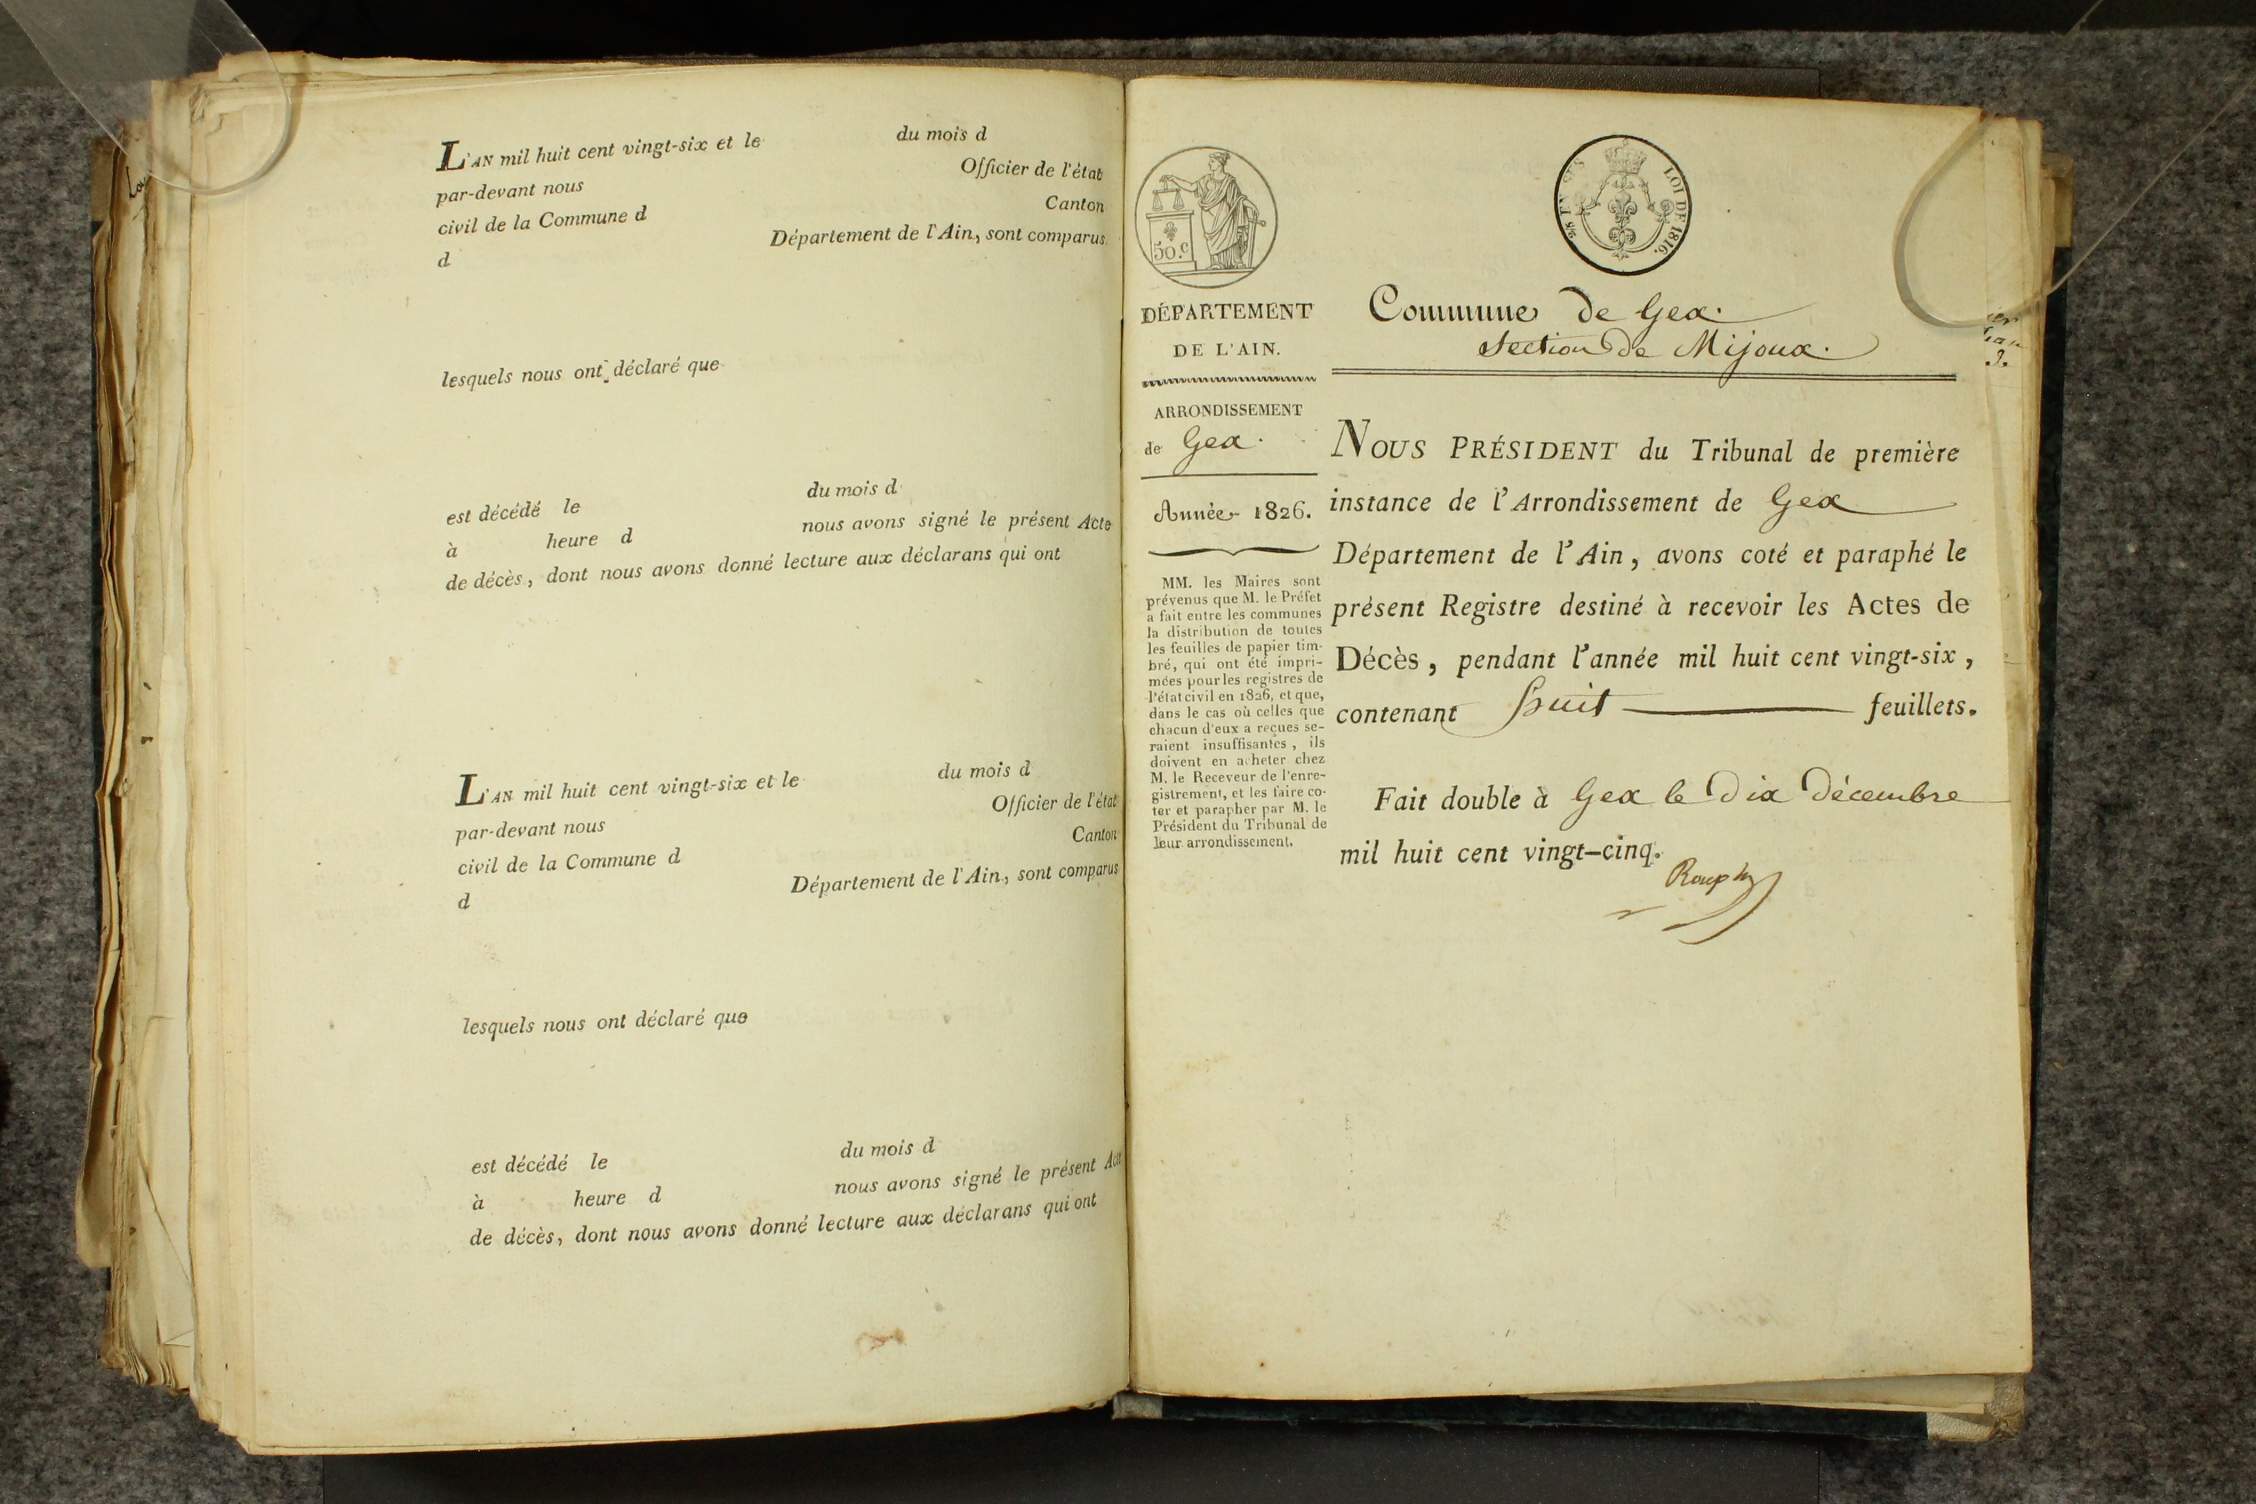 L'AN mil huit cent vingt-six et le du mois d
par-devant nous Officier de l'état
civil de la Commune d Canton
d Département de l'Ain, sont comparus
lesquels nous ont déclaré que
est décédé le du mois d
à heure d nous avons signé le présent Acte
de décès, dont nous avons donné lecture aux déclarans qui ont
L'AN mil huit cent vingt-six et le du mois d
par-devant nous Officier de l'état
civil de la Commune d Canton
d Département de l'Ain, sont comparus
lesquels nous ont déclaré que
est décédé le du mois d
à heure d nous avons signé le présent Acte
de décès, dont nous avons donné lecture aux déclarans qui ont
50.c
LOI DE 1816.
DÉPARTEMENT
DE L'AIN.
ARRONDISSEMENT
de Gex.
Année 1826.
MM. les Maires sont
prévenus que M. le Préfet
a fait entre les communes
la distribution de toutes
les feuilles de papier tim-
bré, qui ont été impri-
mées pour les registres de
l'état civil en 1826, et que,
dans le cas où celles que
chacun d'eux a reçues se-
raient insuffisantes, ils
doivent en acheter chez
M. le Receveur de l'enre-
gistrement, et les faire co-
ter et parapher par M. le
Président du Tribunal de
leur arrondissement.
Commune de Gex.
Section de Mijoux.
NOUS PRÉSIDENT du Tribunal de première
instance de l'Arrondissement de Gex
Département de l'Ain, avons coté et paraphé le
présent Registre destiné à recevoir les Actes de
Décès, pendant l'année mil huit cent vingt-six,
contenant huit feuillets.
Fait double à Gex le Dix Décembre
mil huit cent vingt-cinq.